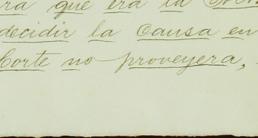 ra que era la
decidir la causa en
Corte no proveyera,